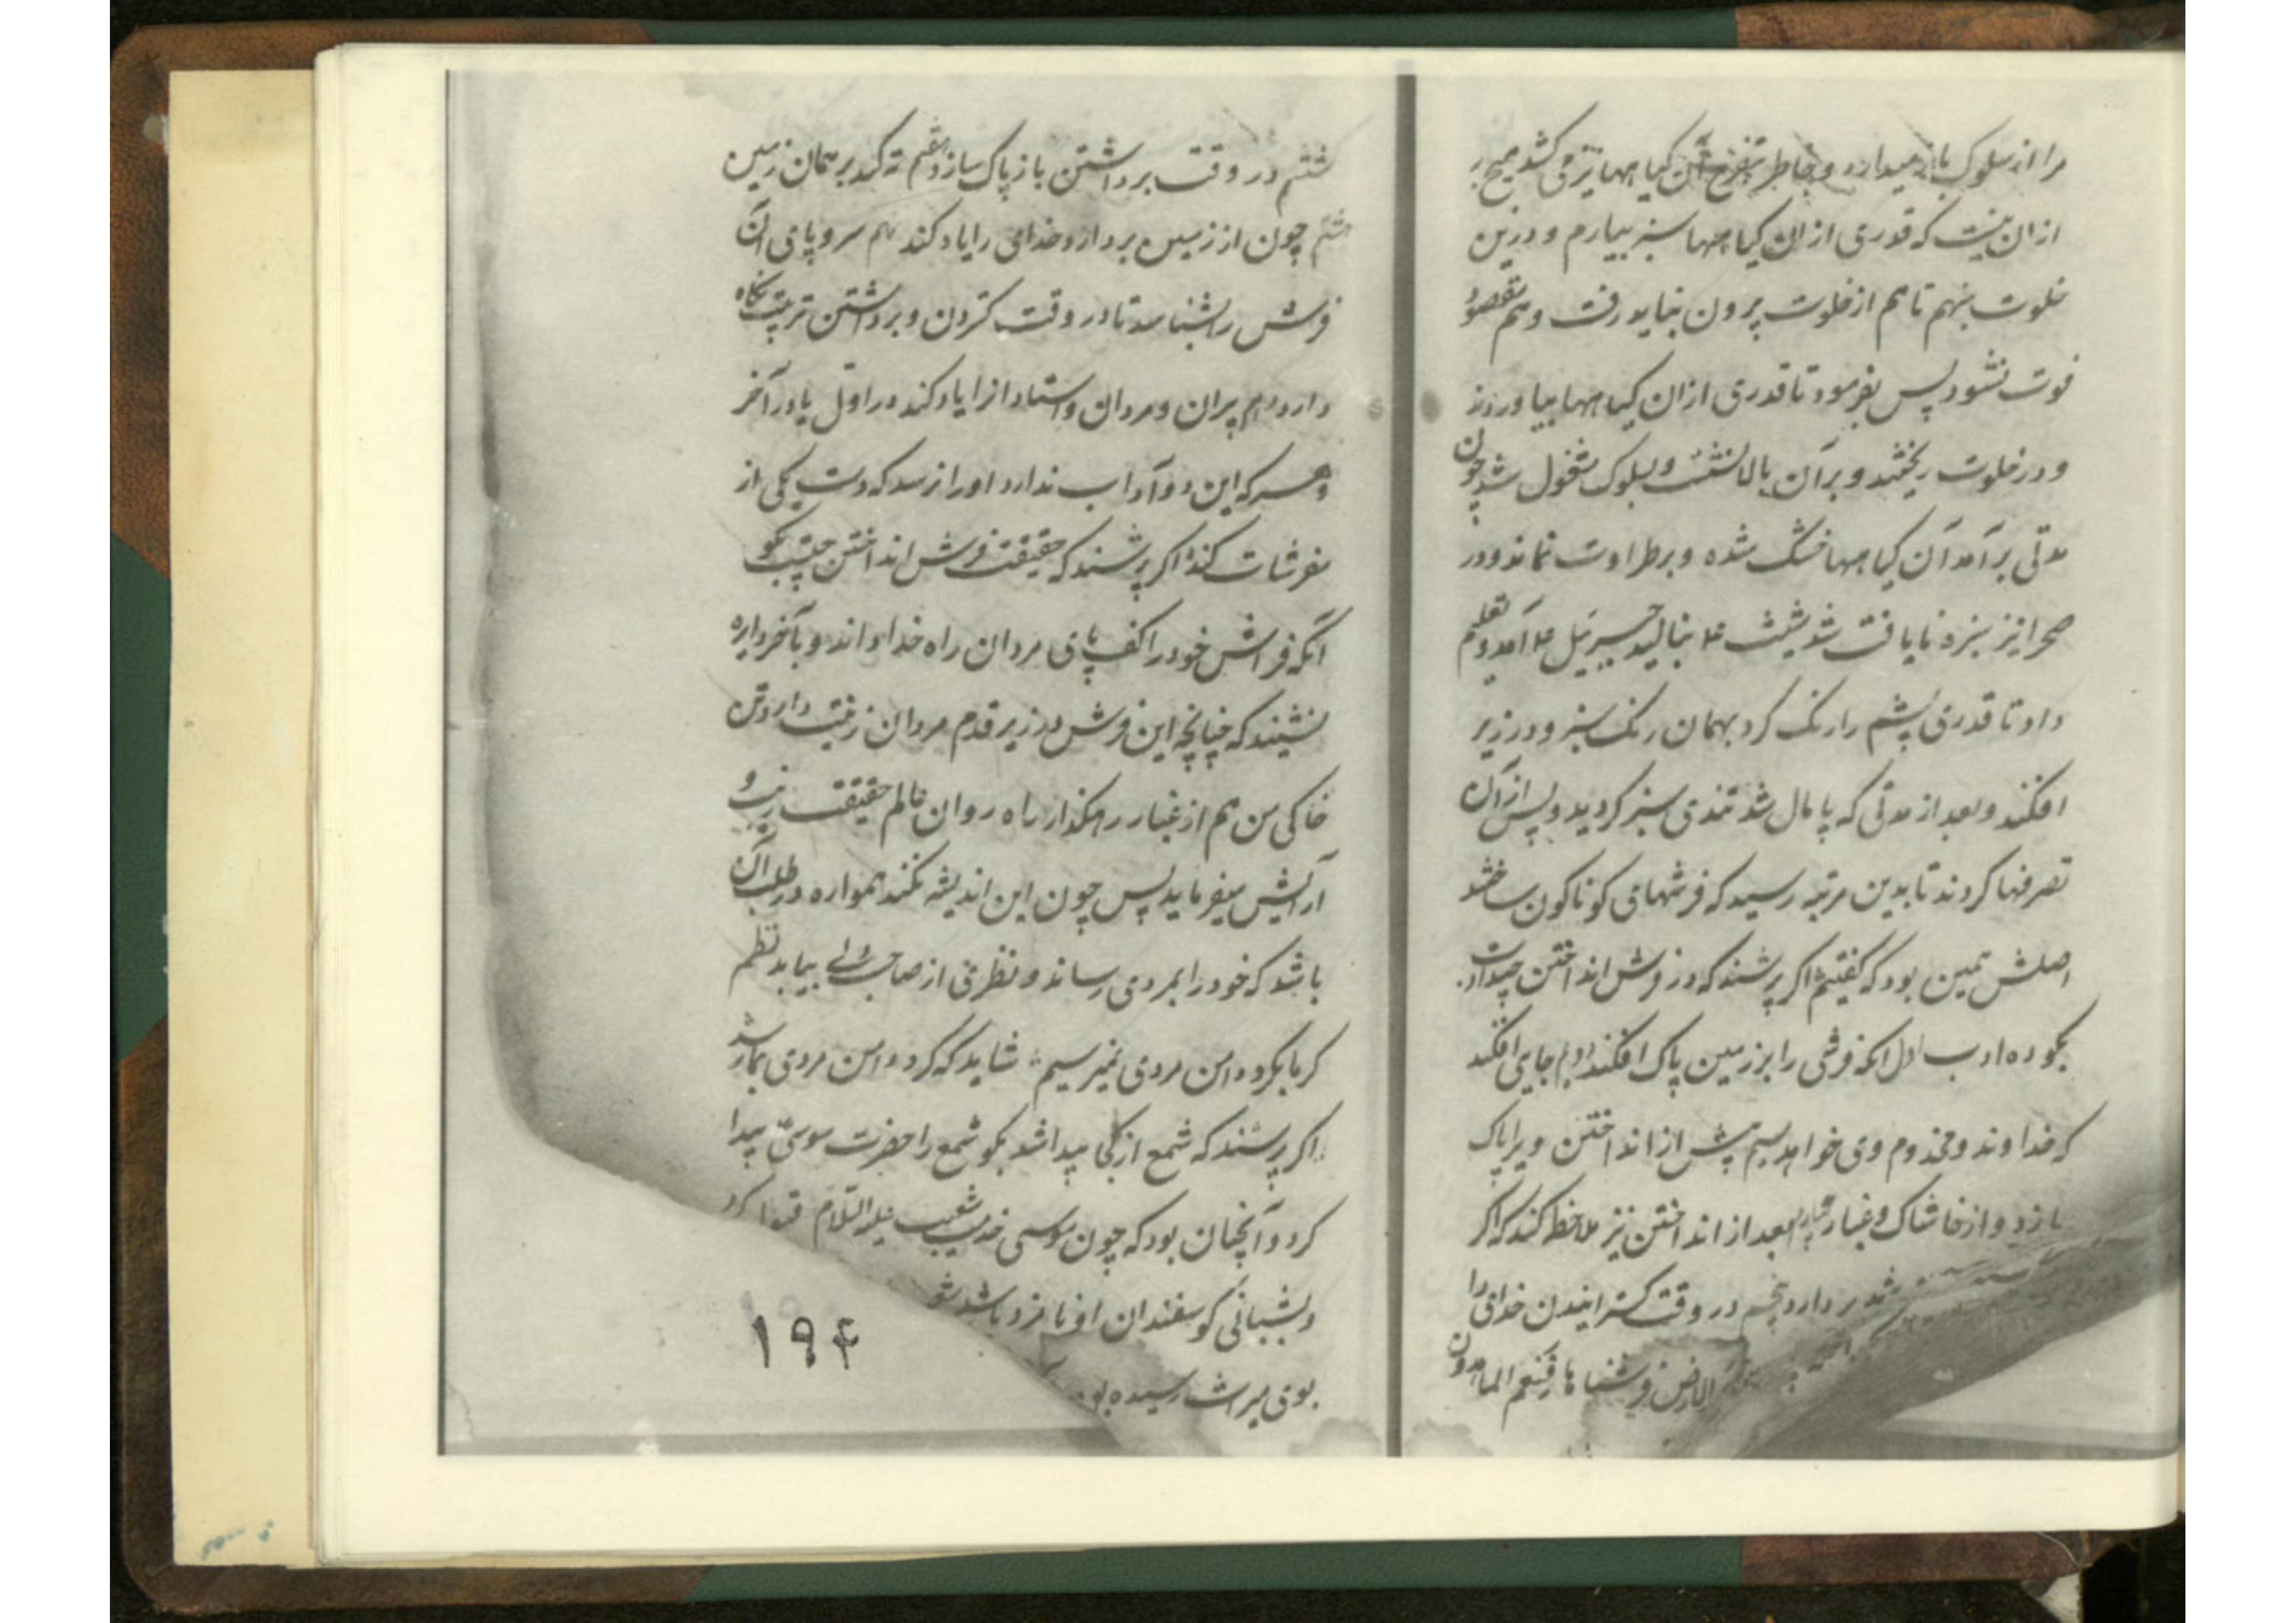 مرا از سلوک باز میدارد و خاطر بتفرج آن کیاهها نیز می کشد هیچ بر
ازان نیست که قدری ازان کیاهها سبز بیارم و درین
خلوت بنهم تا هم از خلوت بیرون نباید رفت و هم مقصود
فوت نشود پس بفرمود تا قدری ازان کیاهها بیاوردند
و در خلوت ریختند و بر آن بالا نشست و بسلوک مشغول شد چون
مدتی بر آمد آن کیاهها خشک شده و بر طراوت نماند و در
صحرا نیز سبزه نایافت شد شیث ع بنالید جبرئیل ع آمد و تعلیم
داد تا قدری پشم را رنک کرد بهمان رنک سبز و در زیر
افکند و بعد از مدتی که پامال شد نمدی سبز کردید و پس از آن
تصرفها کردند تا بدین مرتبه رسید که فرشهای کوناکون ساختند
اصلش همین بود که کفتیم اکر پرسند که در فرش انداختن چند ادب
بکو ده ادب اول انکه فرشی را بر زمین پاک افکند دوم جایی افکند
که خداوند و مخدوم وی خواهد سیم پیش از انداختن ویرا پاک
سازد و از خاشاک و غبار چهارم بعد از انداختن نیز ملاحظه کند که اکر
دارد پنجم در وقت کسترانیدن خدای را
الارض فرشناها فنعم الماهدون
ششم در وقت برداشتن باز پاک سازد هفتم ته کند بر همان زمین
هشتم چون از زمین بردارد خدای را یاد کند نهم سر و پای آن
فرش را بشناسد تا در وقت کستردن و برداشتن ترتیب نکاه
دارد دهم پیران و مردان و استادانرا یاد کند در اول یا در آخر
و هر که این ده آداب ندارد او را نرسد که دست یکی از
مفرشات کند اکر پرسند که حقیقت فرش انداختن چیست بکو
آنکه فراش خود را کف پای مردان راه خدا داند و بآخر دایره
نشیند که چنانچه این فرش در زیر قدم مردان زینت دارد تن
خاکی من هم از غبار رهکذار راه روان عالم حقیقت زینت و
آرایش میفرماید پس چون این اندیشه کند همواره در طلب آن
باشد که خود را بمردی رساند و نظری از صاحب دلی بیابد نظم
کر ما بکرد دامن مردی نمیرسیم شاید که کرد دامن مردی بما رسد
اکر پرسند که شمع از کجا پیدا شد بکو شمع را حضرت موسی پیدا
کرد و آنچنان بود که چون موسی خدمت شعیب علیه السلام قبول کرد
و بشبانی کوسفندان او نامزد باشد
بوی میراث رسیده بود
۱۹۴